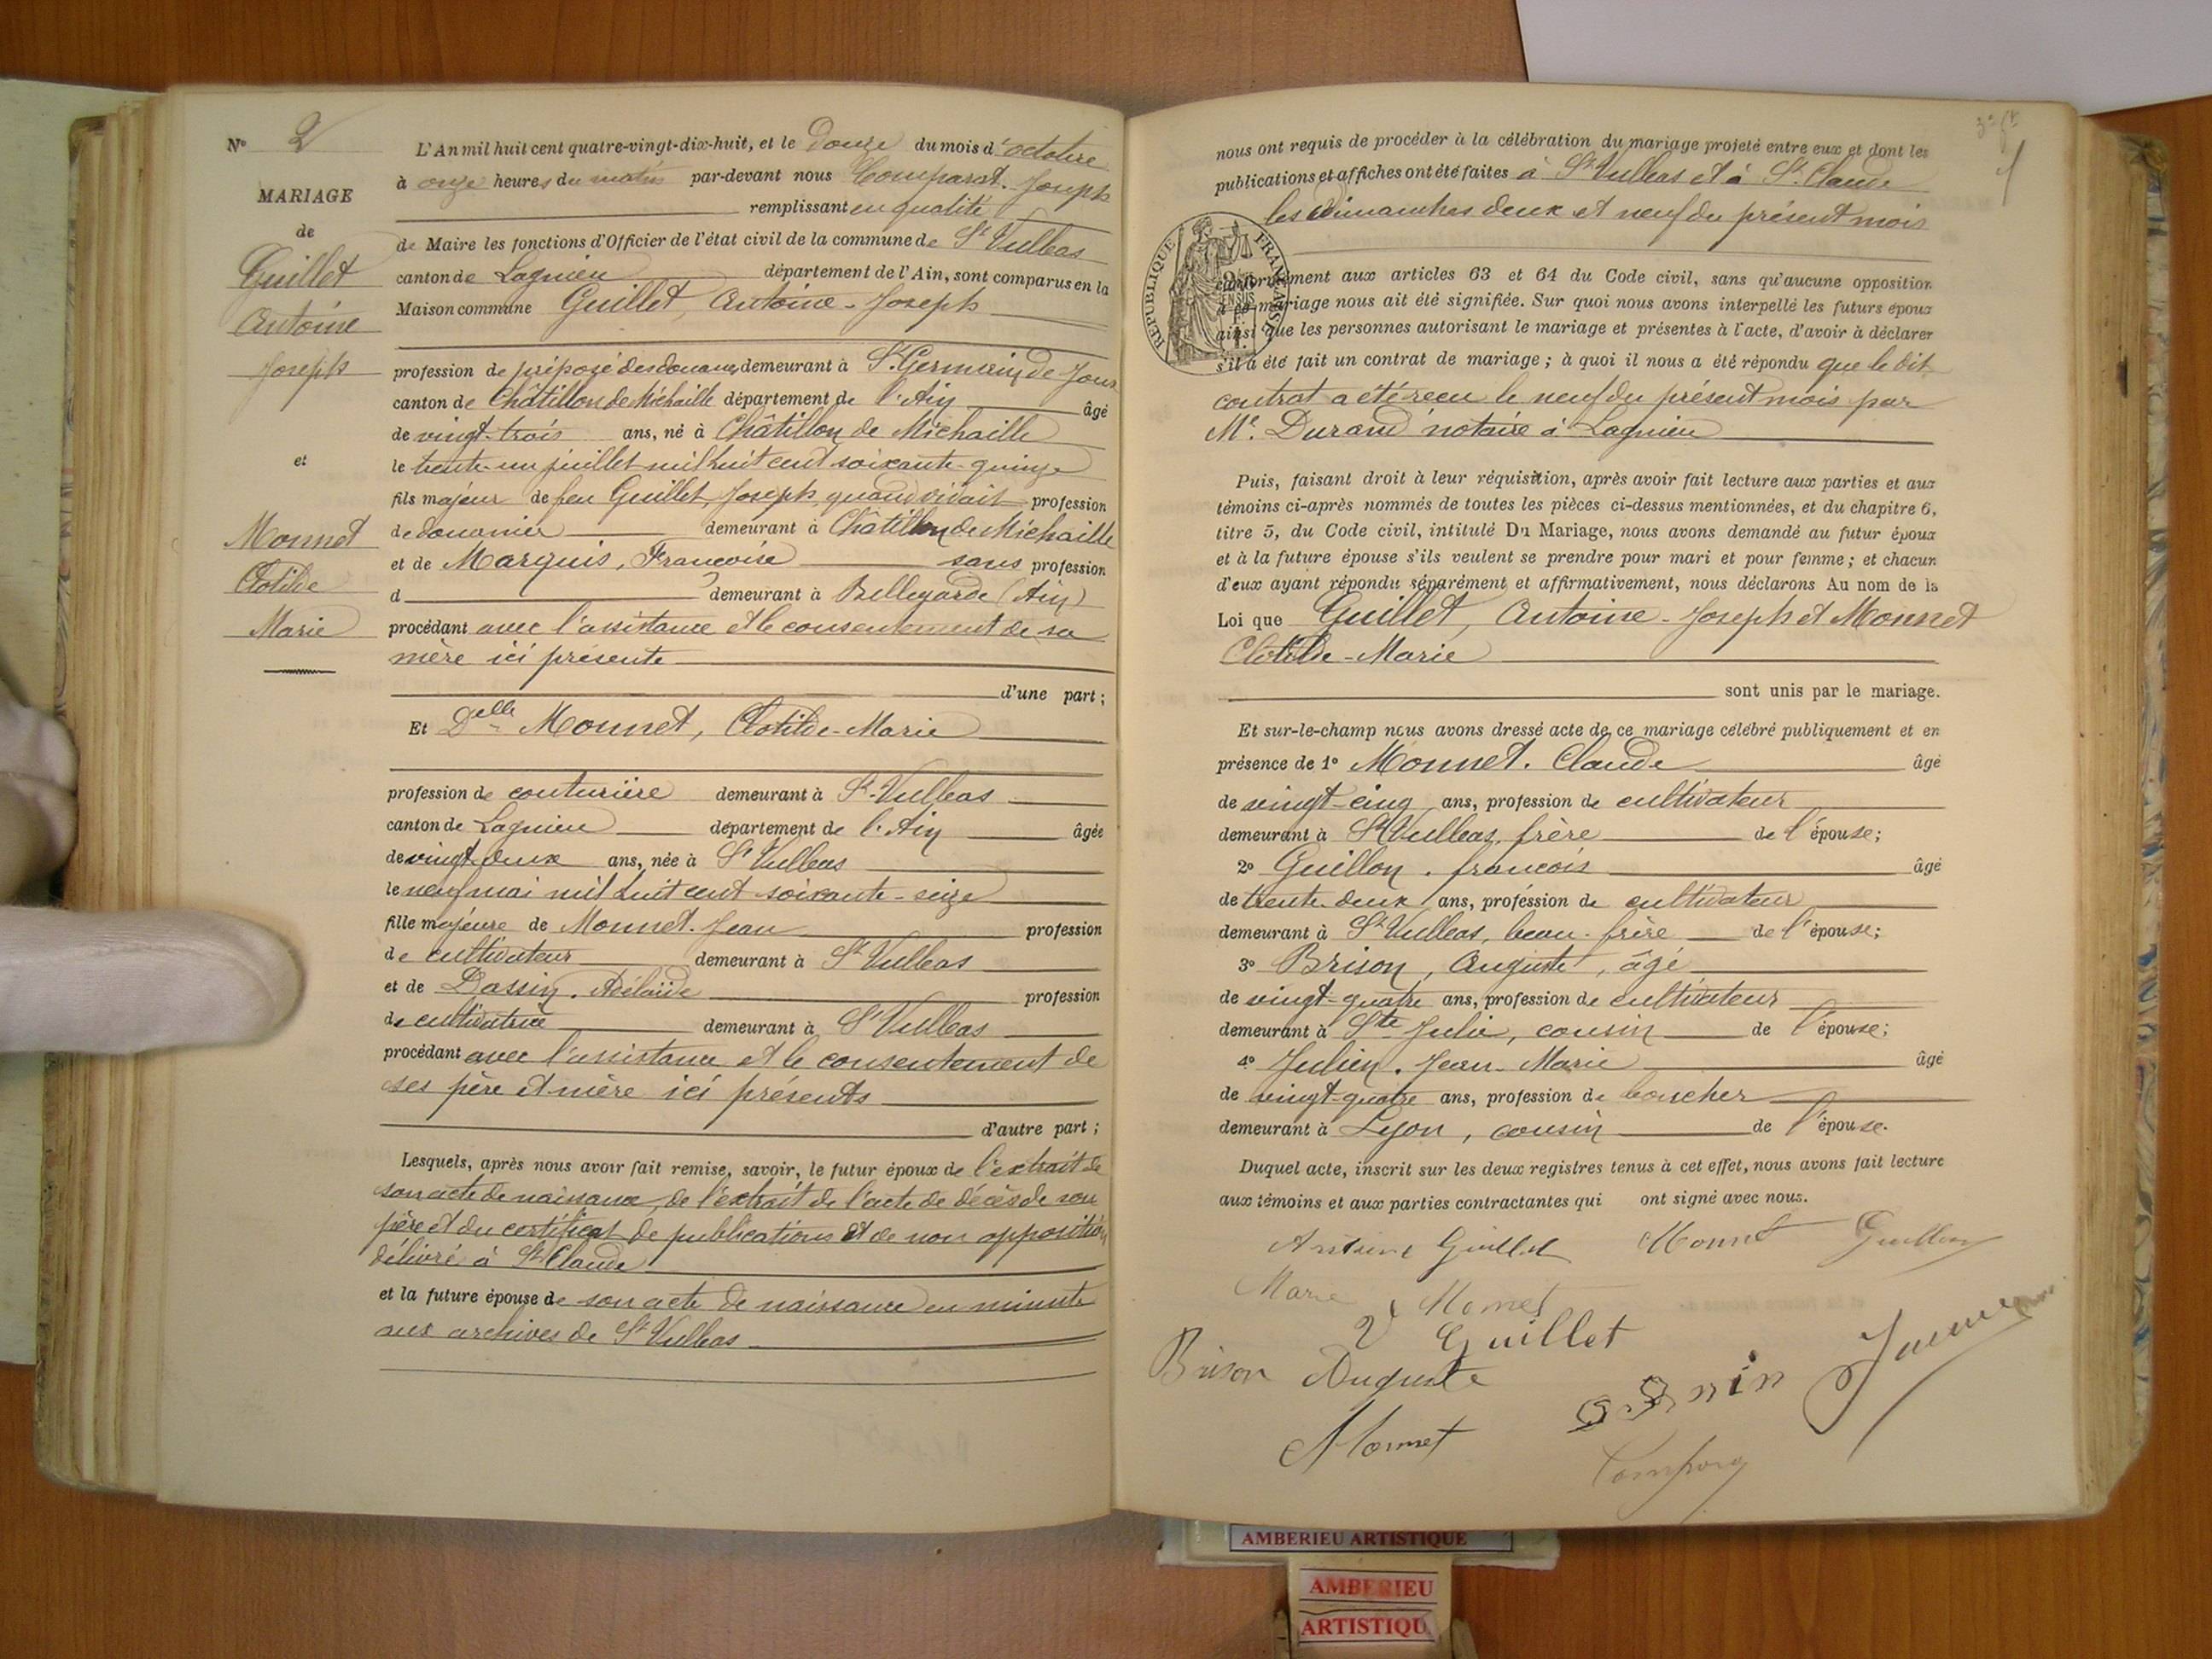 N° 2
MARIAGE
de
Guillet
Antoine
Joseph
et
Monnet
Clotilde
Marie
L'An mil huit cent quatre-vingt-dix-huit, et le douze du mois d'octobre
à onze heures du matin par-devant nous Comparat. Joseph
remplissant en qualité
de Maire les fonctions d'Officier de l'état civil de la commune de St Vulbas
canton de Lagnieu département de l'Ain, sont comparus en la
Maison commune Guillet, Antoine-Joseph
profession de préposé des douanes demeurant à St. Germain de Joux
canton de Châtillon de Michaille département de l'Ain âgé
de vingt-trois ans, né à Châtillon de Michaille
le trente-un juillet mil huit cent soixante-quinze
fils majeur de feu Guillet, Joseph, quand vivait profession
de douanier demeurant à Châtillon de Michaille
et de Marquis, Françoise sans profession
d demeurant à Bellegarde (Ain)
procédant avec l'assistance et le consentement de sa
mère ici présente
d'une part;
Et Delle Monnet, Clotilde-Marie
profession de couturière demeurant à St-Vulbas
canton de Lagnieu département de l'Ain âgée
de vingt-deux ans, née à St Vulbas
le neuf mai mil huit cent soixante-seize
fille majeure de Monnet. Jean profession
de cultivateur demeurant à St Vulbas
et de Dassin. Adélaïde profession
de cultivatrice demeurant à St Vulbas
procédant avec l'assistance et le consentement de
ses père et mère ici présents
d'autre part;
Lesquels, après nous avoir fait remise, savoir, le futur époux de l'extrait de
son acte de naissance, de l'extrait de l'acte de décès de son
père et du certificat de publications et de non opposition
délivré à St Claude
et la future épouse de son acte de naissance en minute
aux archives de St Vulbas
nous ont requis de procéder à la célébration du mariage projeté entre eux et dont les
publications et affiches ont été faites à St Vulbas et à St. Claude
les dimanches deux et neuf du présent mois
RÉPUBLIQUE FRANÇAISE
conformément aux articles 63 et 64 du Code civil, sans qu'aucune opposition
à ce mariage nous ait été signifiée. Sur quoi nous avons interpellé les futurs époux
ainsi que les personnes autorisant le mariage et présentes à l'acte, d'avoir à déclarer
s'il a été fait un contrat de mariage; à quoi il nous a été répondu que le dit
contrat a été recu le neuf du présent mois par
Me. Durand notaire à Lagnieu
Puis, faisant droit à leur réquisition, après avoir fait lecture aux parties et aux
témoins ci-après nommés de toutes les pièces ci-dessus mentionnées, et du chapitre 6,
titre 5, du Code civil, intitulé Du Mariage, nous avons demandé au futur époux
et à la future épouse s'ils veulent se prendre pour mari et pour femme; et chacun
d'eux ayant répondu séparément et affirmativement, nous déclarons Au nom de la
Loi que Guillet, Antoine-Joseph et Monnet
Clotilde-Marie
sont unis par le mariage.
Et sur-le-champ nous avons dressé acte de ce mariage célébré publiquement et en
présence de 1° Monnet. Claude âgé
de vingt-cinq ans, profession de cultivateur
demeurant à St Vulbas, frère de l'épouse;
2° Guillon. françois âgé
de trente-deux ans, profession de cultivateur
demeurant à St Vulbas, beau-frère de l'épouse;
3° Brison, Auguste, âgé
de vingt-quatre ans, profession de cultivateur
demeurant à Ste Julie, cousin de l'épouse;
4° Julien. Jean-Marie âgé
de vingt-quatre ans, profession de boucher
demeurant à Lyon, cousin de l'épouse.
Duquel acte, inscrit sur les deux registres tenus à cet effet, nous avons fait lecture
aux témoins et aux parties contractantes qui ont signé avec nous.
Antoine Guillet Monnet Guillon
Marie Monnet
Ve Guillet
Brison Auguste
Monnet
AMBERIEU ARTISTIQUE
AMBERIEU
ARTISTIQU